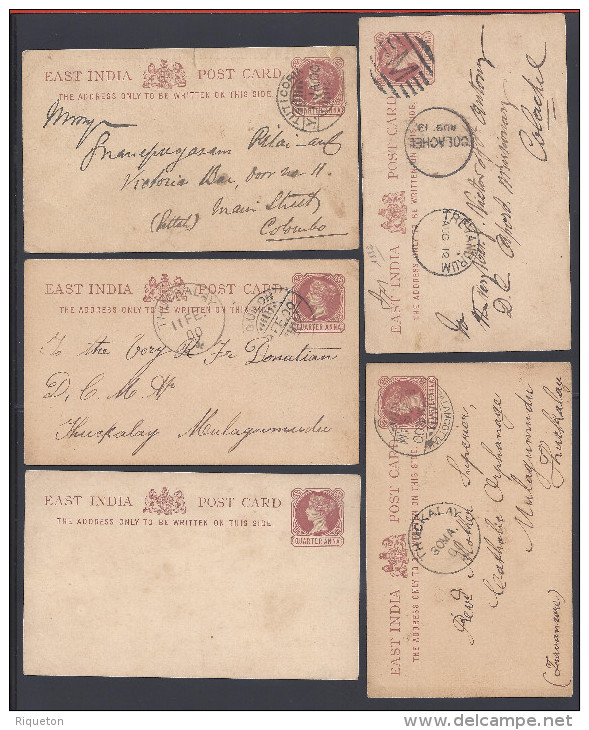 EAST INDIA POST CARD
THE ADDRESS ONLY TO BE WRITTEN ON THIS SIDE.
TUTICORIN
Victoria Bar, Door No 11.
Main Street
Colombo
EAST INDIA POST CARD
THE ADDRESS ONLY TO BE WRITTEN ON THIS SIDE.
QUARTER ANNA
11 FE
00
To the Very Rd Fr Donatian
D. C. M. Ap
Thuckalay Mulagumudu
EAST INDIA POST CARD
THE ADDRESS ONLY TO BE WRITTEN ON THIS SIDE.
QUARTER ANNA
EAST INDIA POST CARD
THE ADDRESS ONLY TO BE WRITTEN ON THIS SIDE.
M
COLACHEL
AUG 13
TREVANDRUM
AUG 12
To
D. C. Missionary
Colachel
EAST INDIA POST CARD
THE ADDRESS ONLY TO BE WRITTEN ON THIS SIDE.
THUCKALAY
30 MA
Revd Mother Superior,
Catholic Orphanage
Mulagumudu
Thuckalay
(Travancore)
Riqueton
delcampe.net